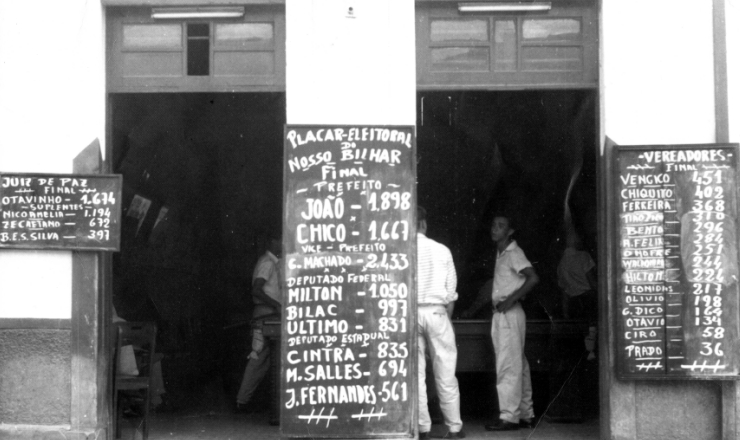 JUIZ DE PAZ
FINAL
OTAVINHO - 1.674
SUPLENTES
NICORMELIA - 1.194
ZE CAETANO - 672
B.E.S. SILVA - 397
PLACAR-ELEITORAL
DO
NOSSO BILHAR
FINAL
- PREFEITO -
JOÃO - 1.898
CHICO - 1.667
VICE - PREFEITO
G. MACHADO - 2.433
DEPUTADO FEDERAL
MILTON - 1.050
BILAC - 997
ULTIMO - 831
DEPUTADO ESTADUAL
CINTRA - 835
M. SALLES - 694
J. FERNANDES - 561
- VEREADORES -
FINAL
VENGKO 451
CHIQUITO 402
FERREIRA 368
310
BENTO 296
A. FELIX 284
ONOFRE 257
244
HILTON 224
LEONIDAS 217
OLIVIO 198
G. DICO 164
OTAVIO 134
CIRO 58
PRADO 36